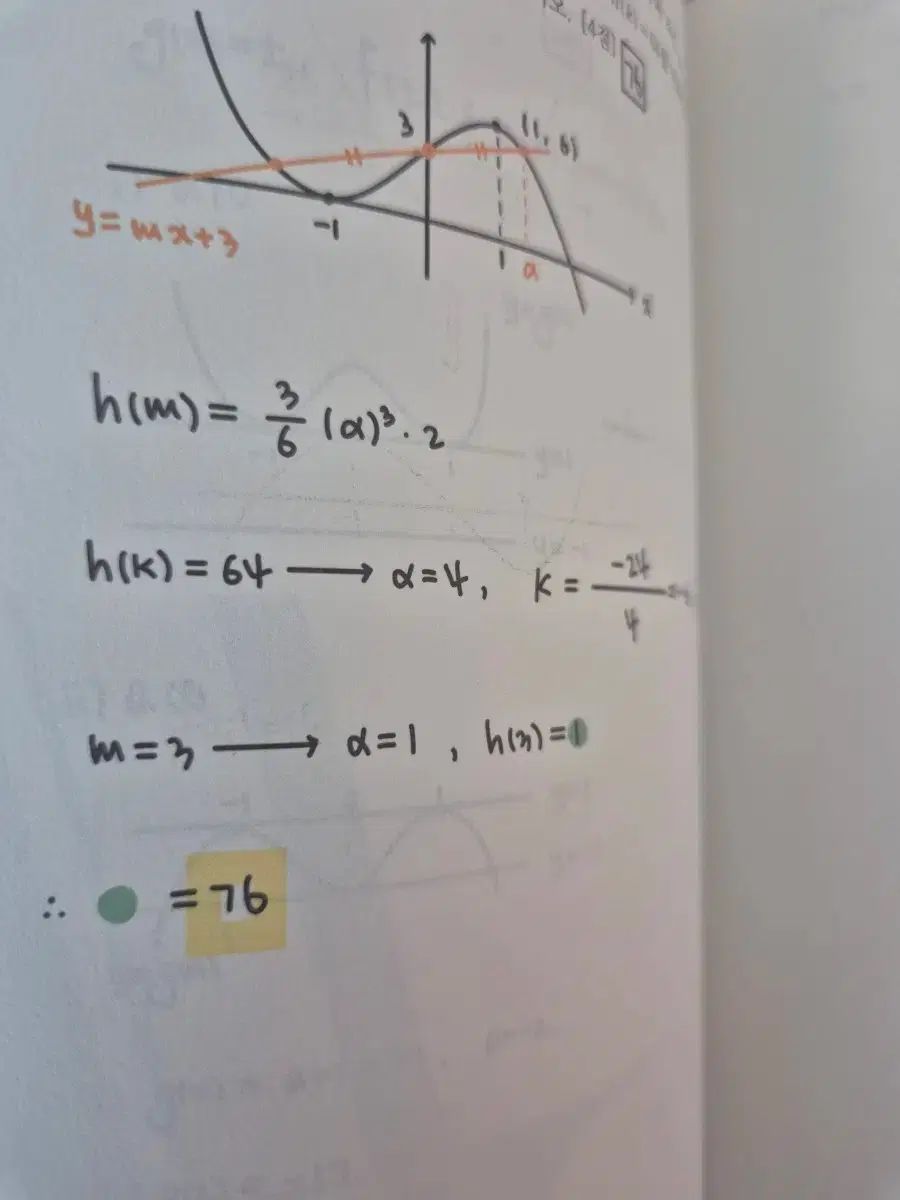 [4점] 76
3
(1, 6)
y=mx+3
-1
1
α
x
h(m) = 3/6 (α)³ · 2
h(k) = 64 ⟶ α=4, k = -24/4
m = 3 ⟶ α=1, h(3)=1
∴ = 76